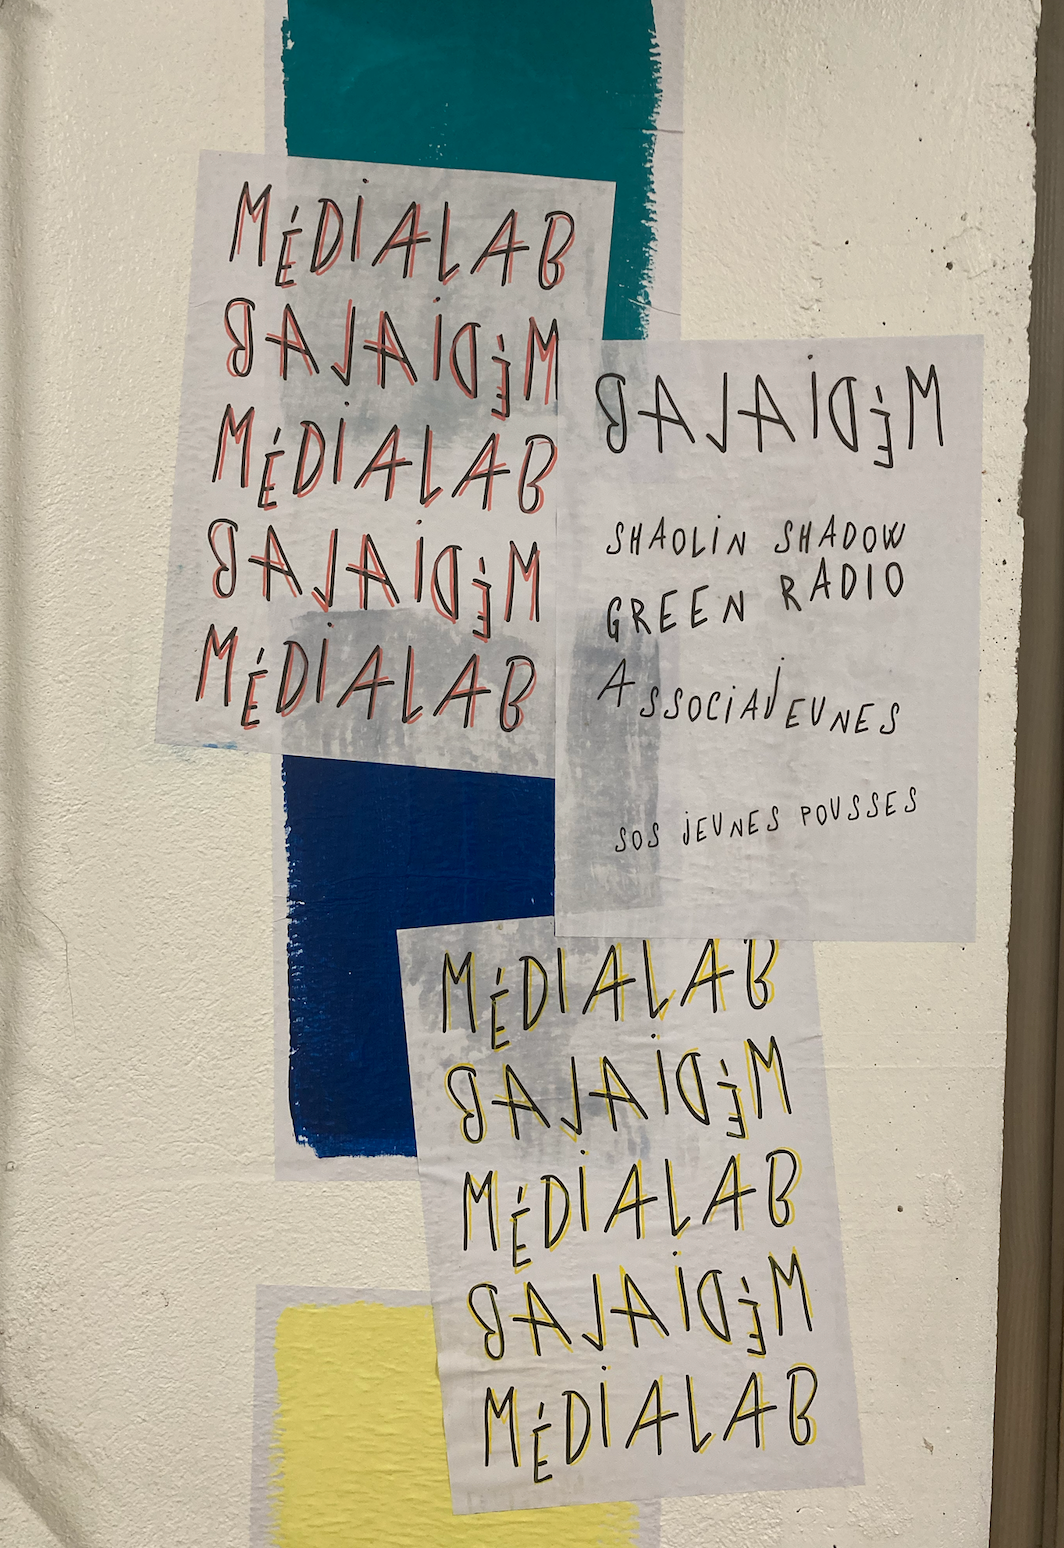 MÉDIALAB
MÉDIALAB
MÉDIALAB
MÉDIALAB
MÉDIALAB
MÉDIALAB
SHAOLIN SHADOW
GREEN RADIO
ASSOCIAJEUNES
SOS JEUNES POUSSES
MÉDIALAB
MÉDIALAB
MÉDIALAB
MÉDIALAB
MÉDIALAB